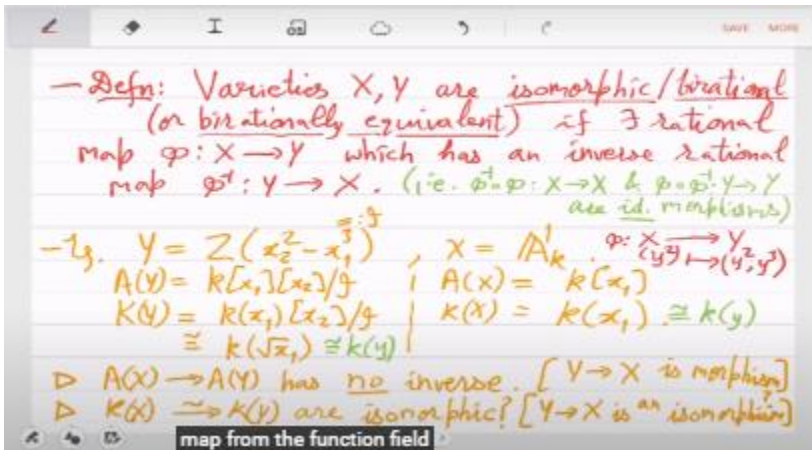 SAVE MORE
— Defn: Varieties X, Y are isomorphic/birational
(or birationally equivalent) if ∃ rational
map φ: X → Y which has an inverse rational
map φ⁻¹: Y → X. (i.e. φ⁻¹∘φ: X→X & φ∘φ⁻¹: Y→Y
are id. morphisms)
=: g
— Eg. Y = Z(x₂² - x₁³), X = A¹ₖ. φ: X → Y
(y²) ↦ (y², y³)
A(Y) = k[x₁][x₂]/g | A(X) = k[x₁]
K(Y) = k(x₁)[x₂]/g | K(X) = k(x₁). ≅ k(y)
≅ k(√x₁) ≅ k(y)
▷ A(X) → A(Y) has no inverse. [Y→X is morphism]
▷ K(X) ≅→ K(Y) are isomorphic? [Y→X is an isomorphism?]
map from the function field